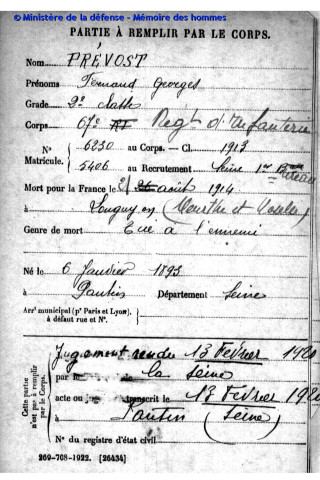 © Ministère de la défense - Mémoire des hommes
PARTIE À REMPLIR PAR LE CORPS.
Nom PRÉVOST
Prénoms Fernand Georges
Grade 2e classe
Corps 67e RI Regt d'Infanterie
N° 6230 au Corps. — Cl. 1913
Matricule. 5406 au Recrutement Seine 1er Bureau
Mort pour la France le août 1914
à (Meurthe et Moselle)
Genre de mort Tué à l'ennemi
Né le 6 Janvier 1893
à Pantin Département Seine
Arrt municipal (pr Paris et Lyon),
à défaut rue et N°.
Cette partie n'est pas à remplir par le Corps.
Jugement rendu 13 Février 1920
par le la Seine
acte ou transcrit le 13 Février 1920
à Pantin (Seine)
N° du registre d'état civil
269-708-1922. [26434]